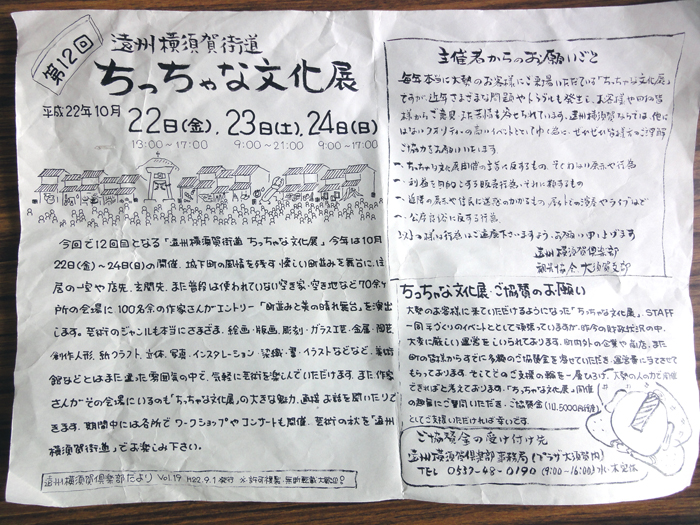 第12回
遠州横須賀街道
ちっちゃな文化展
平成22年10月
22日(金), 23日(土), 24日(日)
13:00~17:00 9:00~21:00 9:00~17:00
今回で12回目となる「遠州横須賀街道 ちっちゃな文化展」。今年は10月
22日(金)~24日(日)の開催。城下町の風情を残す、懐しい町並みを舞台に、住
居の一室や店先、玄関先、また普段は使われていない空き家・空き地など70余ヶ
所の会場に 100名余の作家さんがエントリー「町並みと美の晴れ舞台」を演出
します。芸術のジャンルも本当にさまざま、絵画・版画・彫刻・ガラス工芸・金属・陶芸、
創作人形、紙クラフト、立体、写真、インスタレーション・染織・書・イラストなどなど、美術
館などとはまた違った雰囲気の中で、気軽に芸術を楽しんでいただけます。また作家
さんがその会場にいるのも「ちっちゃな文化展」の大きな魅力、直接お話を聞いたりで
きます。期間中には各所でワークショップやコンサートも開催、芸術の秋を「遠州
横須賀街道」でお楽しみ下さい。
遠州横須賀倶楽部だより Vol.19 H22.9.1発行 ※許可複製・無断転載大歓迎!
主催者からのお願いごと
毎年本当に大勢のお客様にご来場いただいている「ちっちゃな文化展」
ですが、近年さまざまな問題やトラブルも発生し、お客様や出品者
様からご意見、また苦情も寄せられています。遠州横須賀ならでは、他に
はないクオリティーの高いイベントとしてゆく為に、ぜひとも皆様方のご理解
ご協力をお願いいたします
一、ちっちゃな文化展開催の主旨に反するもの、そぐわない展示や行為
一、利益を目的とする販売行為、それに類するもの
一、近隣の民家や住民に迷惑のかかるもの
一、公序良俗に反する行為
以上の様な行為はご遠慮下さいますよう、お願い申し上げます
遠州横須賀倶楽部
観光協会 大須賀支部
ちっちゃな文化展・ご協賛のお願い
大勢のお客様に来ていただけるようになった「ちっちゃな文化展」、STAFF
一同手づくりのイベントとして頑張っていますが、昨今の財政状況の中、
大変に厳しい運営をしいられております。町内外の企業や商店、また
町の皆様からすでに多額のご協賛金を寄せていただき、運営費に当てさせて
もらっております。そしてこのご支援の輪を一層ひろげ、大勢の人の力で開催
できればと考えております。「ちっちゃな文化展」開催
の趣旨にご賛同いただき、ご協賛金(1口、5000円程度)
としてご支援いただければ幸いです。
ご協賛金の受け付け先
遠州横須賀倶楽部事務局 (プラザ大須賀内)
TEL 0537-48-0190 (9:00~16:00) 火・木定休